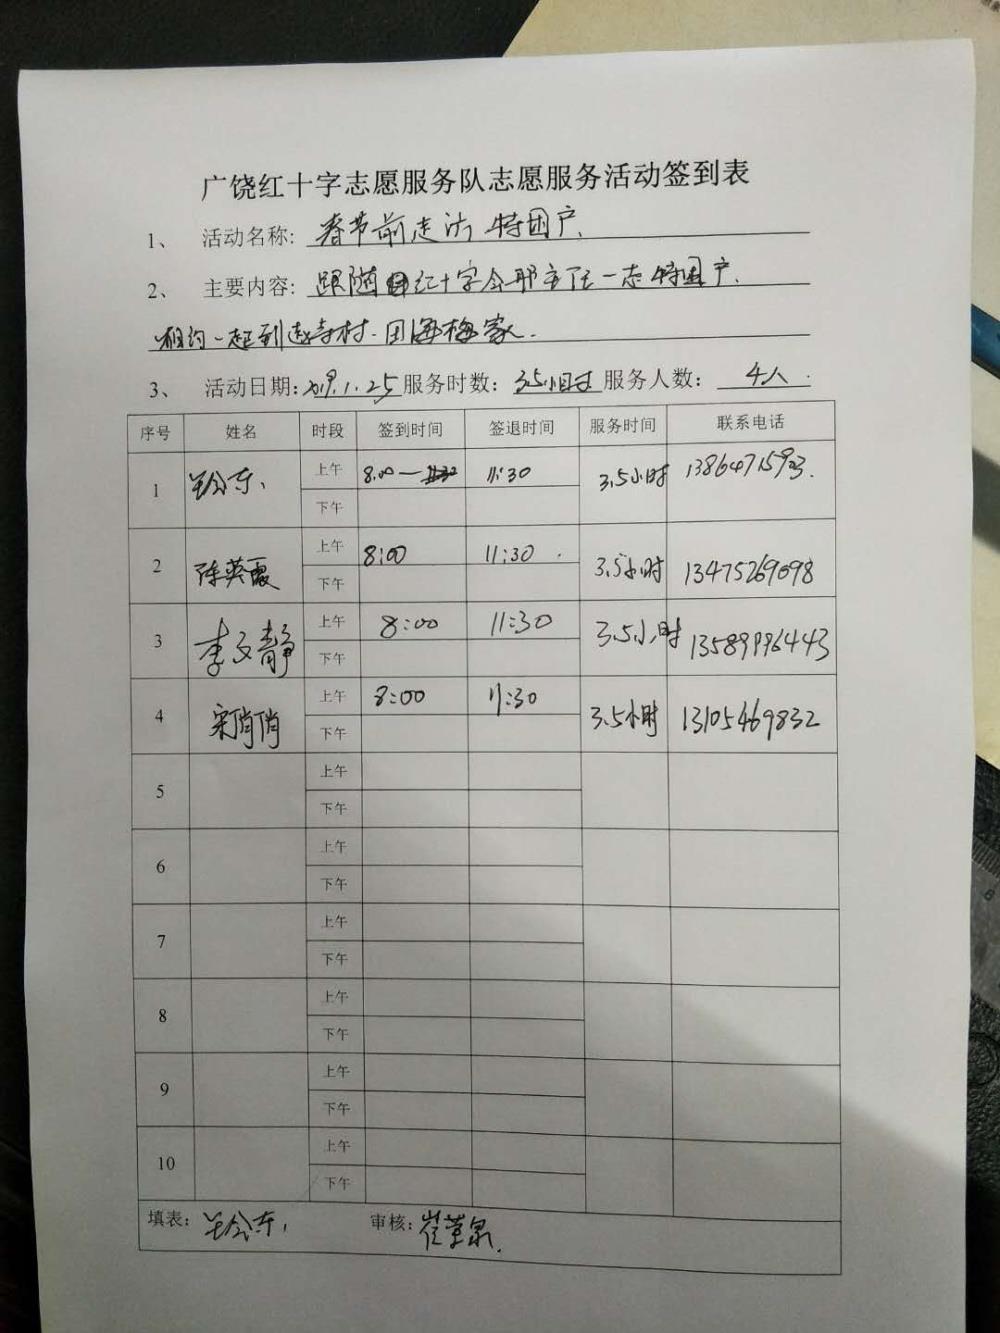 广饶红十字志愿服务队志愿服务活动签到表
1、 活动名称: 春节前走访特困户.
2、 主要内容: 跟随红十字会邢主任一志特困户.
相约一起到村.田海梅家.
3、 活动日期: 2019.1.25 服务时数: 3.5小时 服务人数: 4人
序号 姓名 时段 签到时间 签退时间 服务时间 联系电话
1 上午 8:00— 11:30 3.5小时
下午
2 陈英霞 上午 8:00 11:30 3.5小时 13475269098
下午
3 李文静 上午 8:00 11:30 3.5小时 13589996443
下午
4 宋俏俏 上午 8:00 11:30 3.5小时 13105469832
下午
5 上午
下午
6 上午
下午
7 上午
下午
8 上午
下午
9 上午
下午
10 上午
下午
填表: 审核: